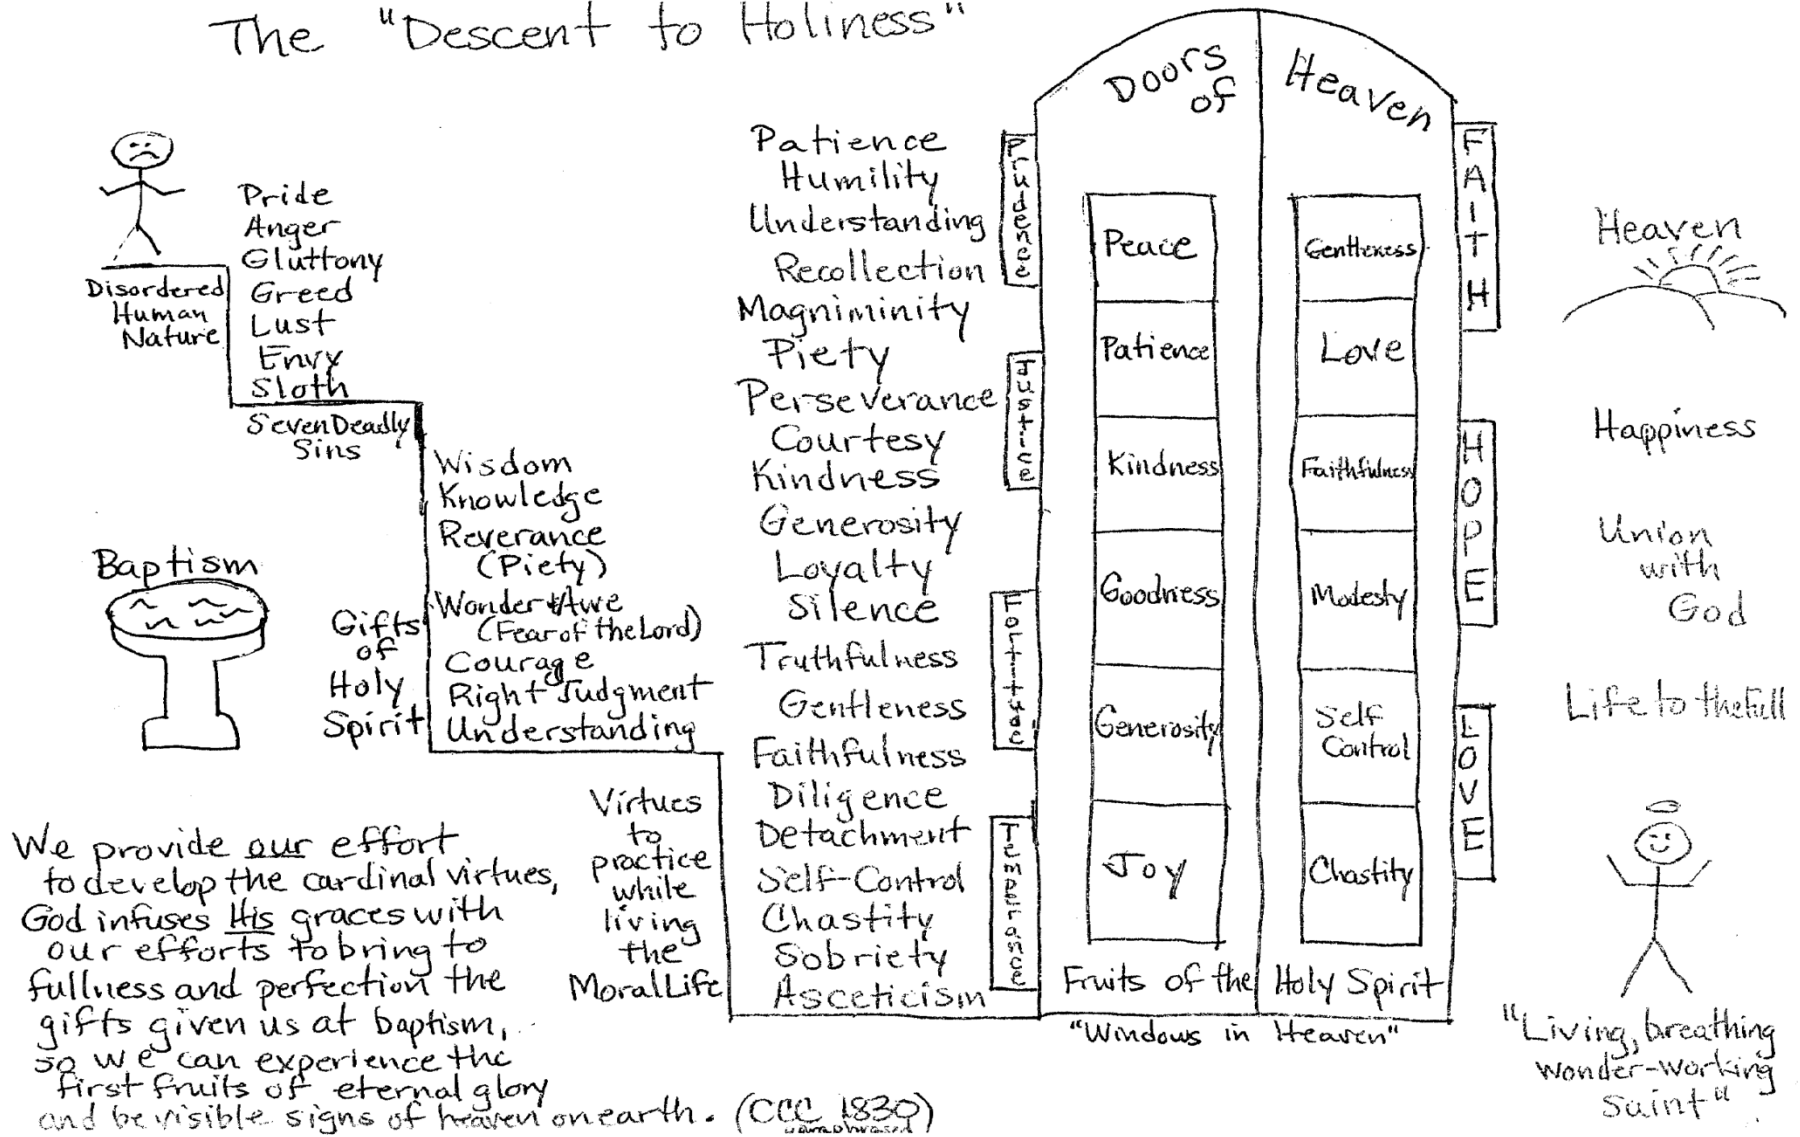 The "Descent to Holiness"
Pride
Anger
Gluttony
Greed
Lust
Envy
Sloth
Disordered
Human
Nature
Seven Deadly
Sins
Wisdom
Knowledge
Reverance
(Piety)
Wonder & Awe
(Fear of the Lord)
Courage
Right Judgment
Understanding
Gifts
of
Holy
Spirit
Baptism
Virtues
to
practice
while
living
the
Moral Life
Patience
Humility
Understanding
Recollection
Magniminity
Piety
Perseverance
Courtesy
Kindness
Generosity
Loyalty
Silence
Truthfulness
Gentleness
Faithfulness
Diligence
Detachment
Self-Control
Chastity
Sobriety
Asceticism
Prudence
Justice
Fortitude
Temperance
Doors of Heaven
Peace
Patience
Kindness
Goodness
Generosity
Joy
Gentleness
Love
Faithfulness
Modesty
Self
Control
Chastity
Fruits of the Holy Spirit
"Windows in Heaven"
FAITH
HOPE
LOVE
Heaven
Happiness
Union
with
God
Life to the full
"Living, breathing
wonder-working
Saint"
We provide our effort
to develop the cardinal virtues,
God infuses His graces with
our efforts to bring to
fullness and perfection the
gifts given us at baptism,
so we can experience the
first fruits of eternal glory
and be visible signs of heaven on earth. (CCC 1830)
paraphrased